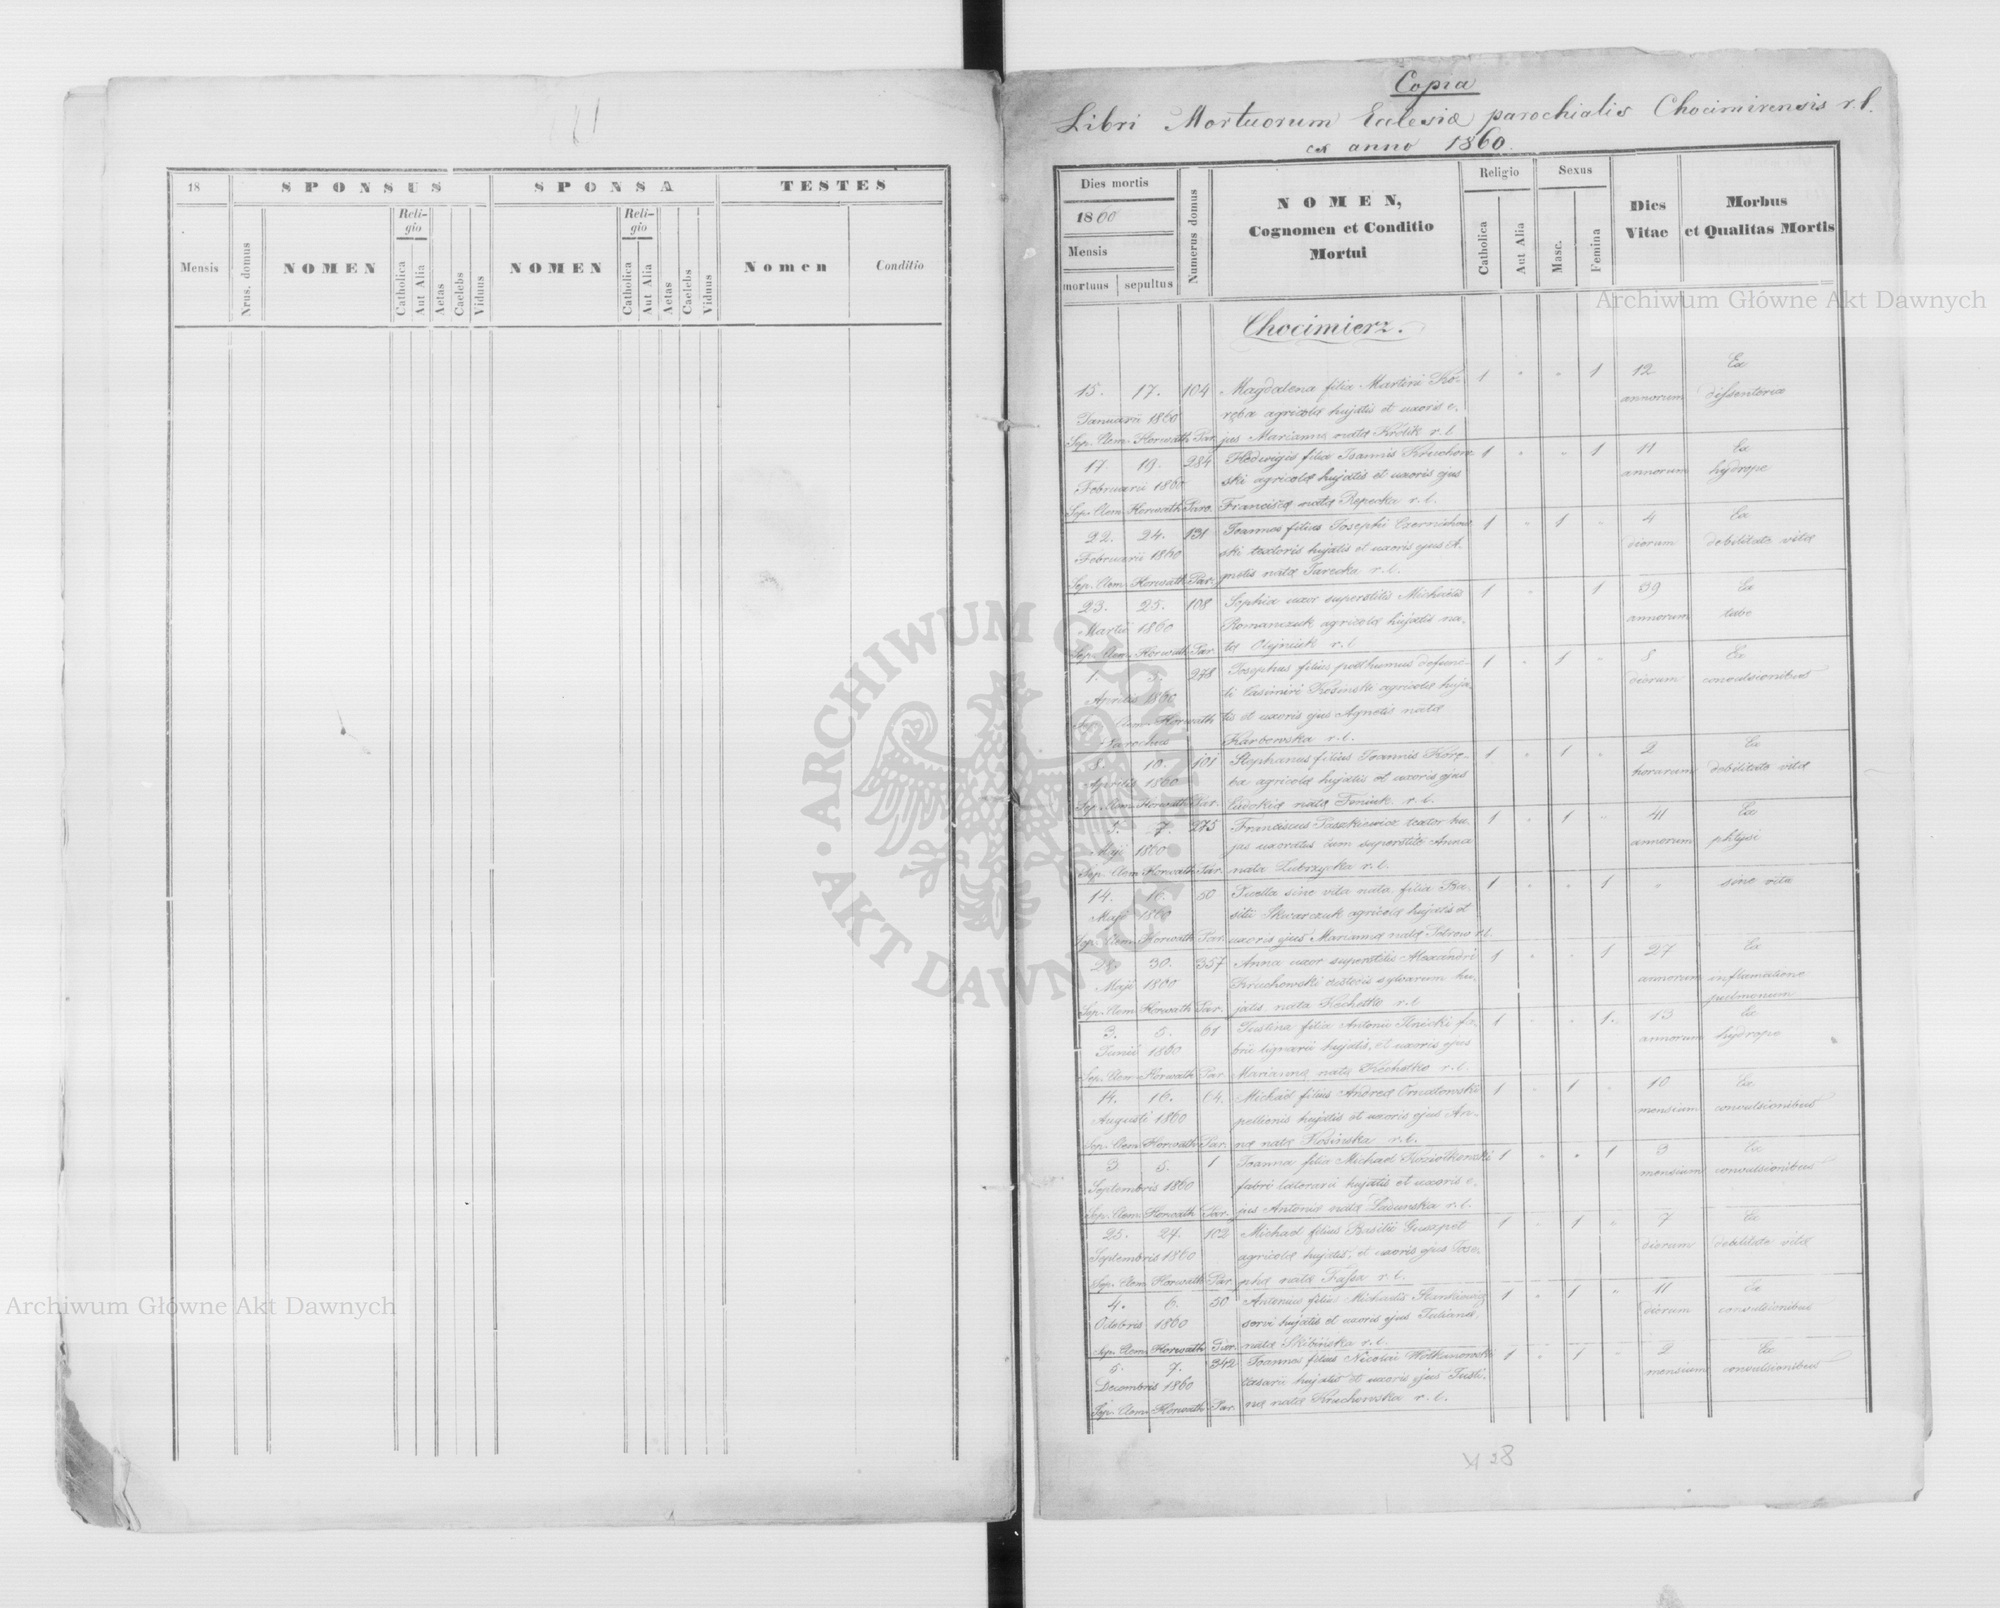 18
SPONSUS
SPONSA
TESTES
Mensis
Nrus. domus
NOMEN
Reli-
gio
Catholica
Aut Alia
Aetas
Caelebs
Viduus
NOMEN
Reli-
gio
Catholica
Aut Alia
Aetas
Caelebs
Viduus
Nomen
Conditio
Copia
Libri Mortuorum Eclesiæ parochialis Chocimirensis r. l.
ex anno 1860.
Dies mortis
1860
Mensis
mortuus
sepultus
Numerus domus
NOMEN,
Cognomen et Conditio
Mortui
Religio
Catholica
Aut Alia
Sexus
Masc.
Femina
Dies
Vitae
Morbus
et Qualitas Mortis
Chocimierz.
15. 17. 104 Magdalena filia Martini Ko- 1 " " 1 12 Ex
Januarii 1860 ręba agricolæ hujatis et uxoris e- annorum dissenteria
Sep. Clem. Horwath Par. jus Marianna nata Krolik r. l.
17. 19. 284 Hedwigis filia Joannis Kruchow 1 " " 1 11 Ex
Februarii 1860 ski agricolæ hujatis et uxoris ejus annorum hydrope
Sep. Clem. Horwath Paro. Franciscæ natæ Repecka r. l.
22. 24. 131 Joannes filius Josephi 1 " 1 " 4 Ex
Februarii 1860 ski textoris hujatis et uxoris ejus A- dierum debilitate vitæ
Sep. Clem. Horwath Par. gnetis natæ Tarecka r. l.
23. 25. 108 Sophia uxor superstitis Michaelis 1 1 39 Ex
Martii 1860 Romanczuk agricolæ hujatis na- annorum tabe
Sep. Clem. Horwath Par. ta Olejniuk r. l.
1. 3. 278 Josephus filius posthumus defunc- 1 " 1 " 8 Ex
Aprilis 1860 ti Casimiri Kosinski agricolæ huja- dierum convulsionibus
Sep. Clem. Horwath tis et uxoris ejus Agnetis natæ
Parochus Karbowska r. l.
8. 10. 101 Stephanus filius Joannis Korę- 1 " 1 " 2 Ex
Aprilis 1860 ba agricolæ hujatis et uxoris ejus horarum debilitate vitæ
Sep. Clem. Horwath Par. Eudokiæ natæ Feniuk r. l.
5. 7. 275 Franciscus Paszkiewicz textor hu- 1 " 1 " 41 Ex
Maji 1860 jas uxoratus cum superstite Anna annorum phtysi
Sep. Clem. Horwath Par. nata Zubrzycka r. l.
14. 16. 50 Puella sine vita nata, filia Ba- 1 " " 1 " sine vita
Maji 1860 silii Skwarczuk agricolæ hujatis et
Sep. Clem. Horwath Par. uxoris ejus Marianna natæ r. l.
28. 30. 357 Anna uxor superstitis Alexandri 1 " " 1 27 Ex
Maji 1860 Kruchowski sylvarum hu- annorum inflamatione
Sep. Clem. Horwath Par. jatis nata Kechetko r. l. pulmonum
3. 5. 61 Justina filia Antonii Ilnicki fa- 1 " " 1 13 Ex
Junii 1860 bri lignarii hujatis, et uxoris ejus annorum hydrope
Sep. Clem. Horwath Par. Marianna nata Kechetko r. l.
14. 16. 64. Michael filius Andreæ Ornatowski 1 " 1 " 10 Ex
Augusti 1860 pellionis hujatis et uxoris ejus An- mensium convulsionibus
Sep. Clem. Horwath Par. næ natæ Kosinska r. l.
3 5. 1 Joanna filia Michael Koziolkowski 1 " " 1 3 Ex
Septembris 1860 fabri hujatis et uxoris e- mensium convulsionibus
Sep. Clem. Horwath Par. jus Antonia nata r. l.
25. 27. 102 Michael filius Basilii 1 " 1 " 7 Ex
Septembris 1860 agricolæ hujatis, et uxoris ejus Jose- dierum debilitate vitæ
Sep. Clem. Horwath Par. pha nata Fassa r. l.
4. 6. 50 Antonius filius Michaelis Stankiewicz 1 " 1 " 11 Ex
Octobris 1860 servi hujatis et uxoris ejus Julianæ dierum convulsionibus
Sep. Clem. Horwath Par. natæ Skibińska r. l.
5. 7. 342 Joannes filius Nicolai 1 " 1 " 2 Ex
Decembris 1860 hujatis et uxoris ejus Justi- mensium convulsionibus
Sep. Clem. Horwath Par. næ natæ Kruchowska r. l.
28
Archiwum Główne Akt Dawnych
Archiwum Główne Akt Dawnych
ARCHIWUM GŁÓWNE
AKT DAWNYCH